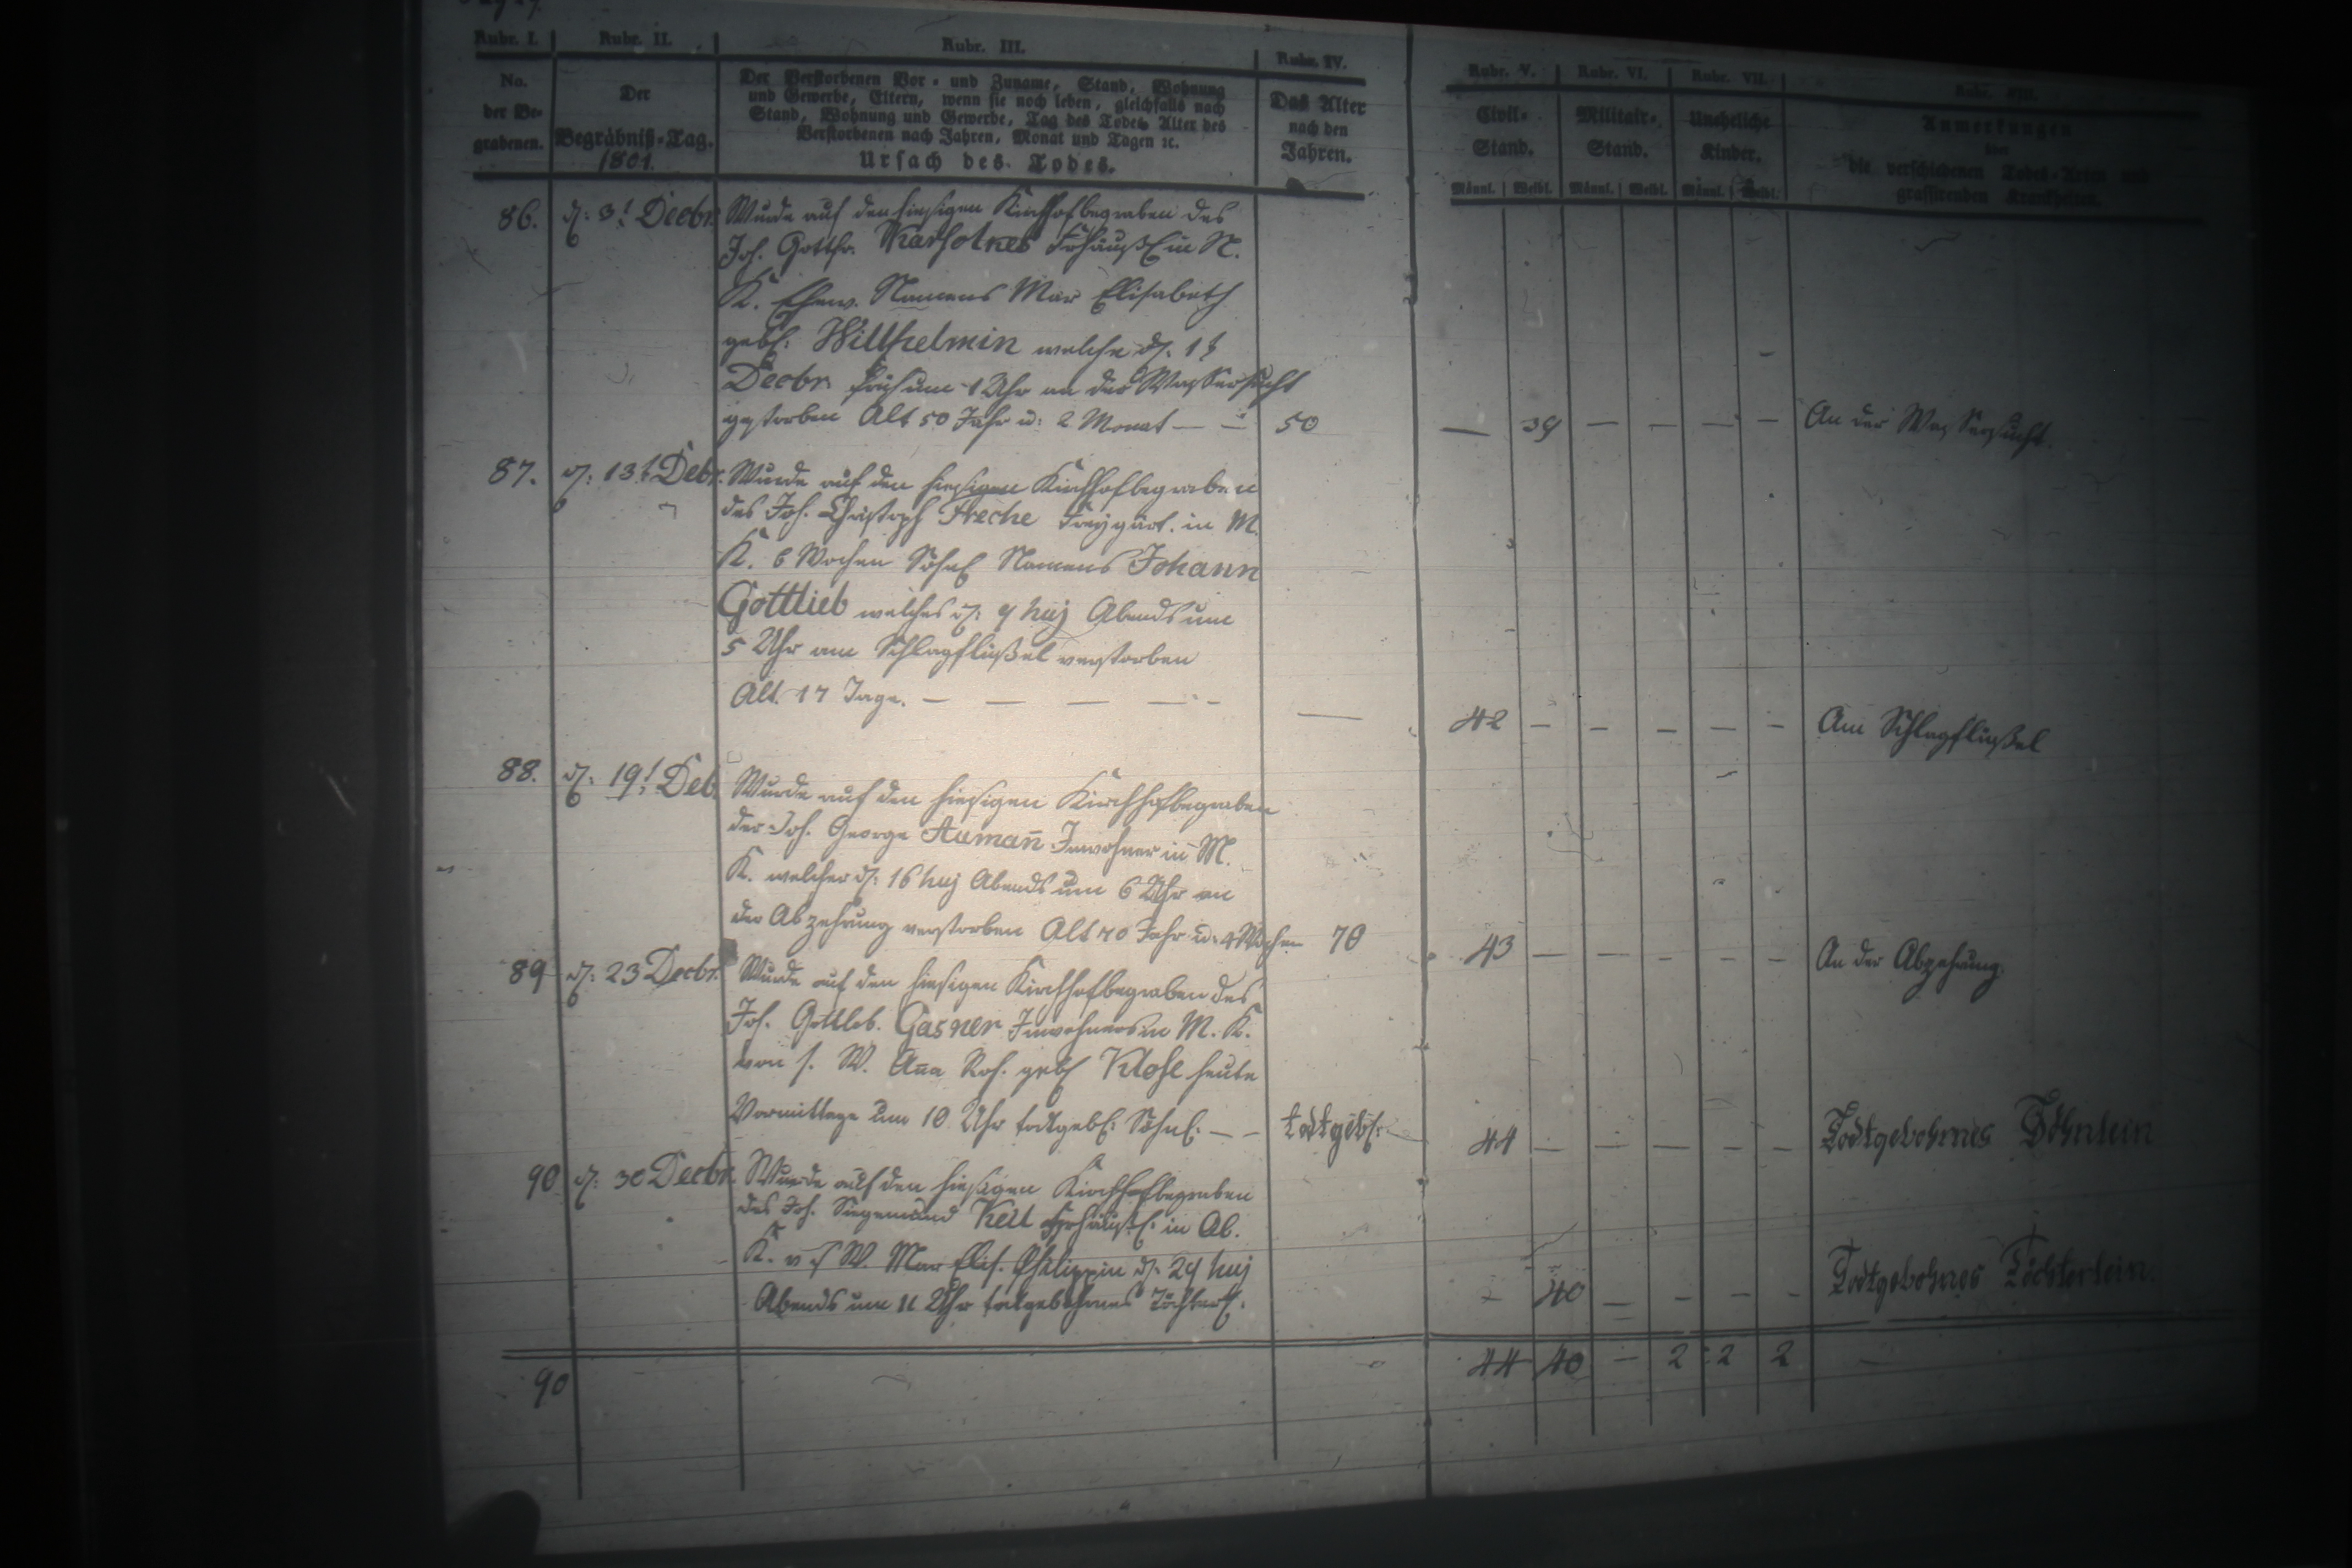 Rubr. I. Rubr. II. Rubr. III. Rubr. IV. Rubr. V. Rubr. VI. Rubr. VII. Rubr. VIII.
No. der Be-grabenen.
Der Begräbniß-Tag. 1801.
Der Verstorbenen Vor- und Zuname, Stand, Wohnung
und Gewerbe, Eltern, wenn sie noch leben, gleichfalls nach
Stand, Wohnung und Gewerbe, Tag des Todes, Alter des
Verstorbenen nach Jahren, Monat und Tagen ꝛc.
Ursach des Todes.
Das Alter
nach den
Jahren.
Civil-Stand.
Militair-Stand.
Uneheliche Kinder.
Anmerkungen
über
die verschiedenen Todes-Arten und
grassirenden Krankheiten.
Männl. Weibl. Männl. Weibl. Männl. Weibl.
86. d: 3t Decbr. Wurde auf den hiesigen Kirchhof begraben des
Joh. Gottfr. in N.
K. Ehew. Namens Mar Elisabeth
gebh: Willhelmin welche d. 1t
Decbr. früh um 1 Uhr an der Wassersucht
gestorben Alt 50 Jahr u: 2 Monat — — 50 — 39 — — — — An der Wassersucht.
87. d: 13t Debr. Wurde auf den hiesigen Kirchhof begraben
des Joh. Christoph Freche Freygärt. in M.
K. 6 Wochen Söhnl Namens Johann
Gottlieb welches d: 9 huj Abends um
5 Uhr am Schlagflüßel verstorben
Alt. 17 Tage. — — — — — 42 — — — — — Am Schlagflüßel
88. d: 19t Deb. Wurde auf den hiesigen Kirchhof begraben
der Joh. George Aumañ Inwohner in M.
K. welcher d: 16 huj Abends um 6 Uhr an
der Abzehrung verstorben Alt 70 Jahr u: 4 Wochen 70 43 — — — — — An der Abzehrung
89 d: 23 Decbr. Wurde auf den hiesigen Kirchhof begraben des
Joh. Gottlob. Gasner Inwohners in M. K.
von s. W. Aña Ros. gebh Klose heute
Vormittage um 10 Uhr todtgebh: Söhnl. — — todtgebh: 44 — — — — — Todtgebohrnes Söhnlein
90 d: 30 Decbr. Wurde auf den hiesigen Kirchhof begraben
des Joh. Siegemund Keil in Ob.
K. v s W. Mar Elis. Philippin d: 29 huj
Abends um 11 Uhr todtgebohrnes Töchterl. - 40 — - - - Todtgebohrnes Töchterlein.
90 44 40 — 2 2 2